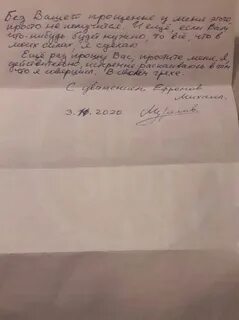 Без Вашего прощения у меня этого
просто не получится. И ещё, если Вам
что-нибудь будет нужно, то всё, что в
моих силах, я сделаю.
Ещё раз прошу Вас, простите меня, я
действительно, искренне раскаиваюсь в том
что я совершил. В своём грехе.
С уважением Ефремов
Михаил.
3. 10. 2020